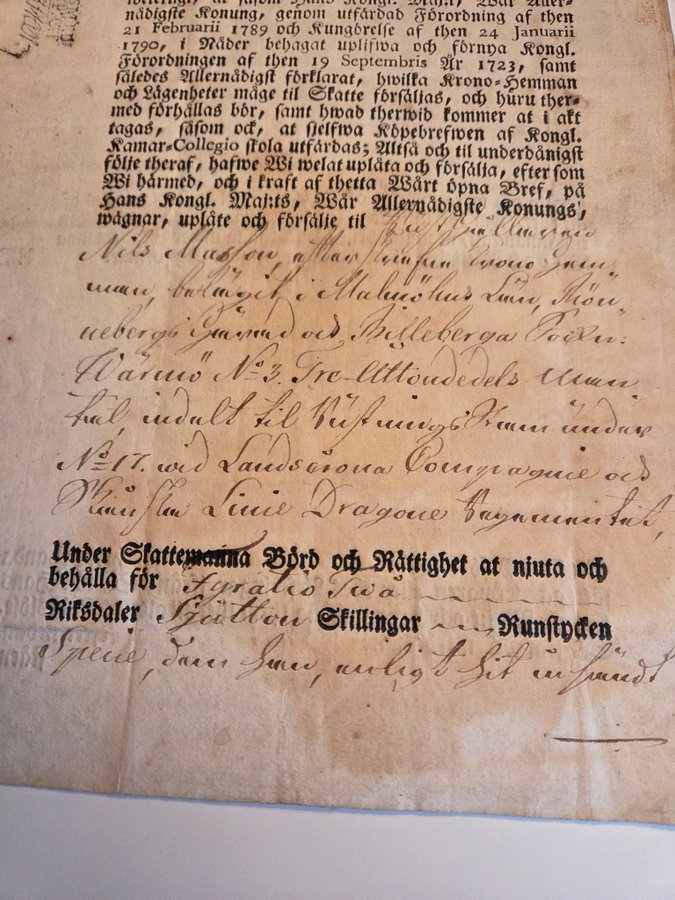 at såsom Hans Kongl. Maj:t, Wår Aller-
nådigste Konung, genom utfårdad Förordning af then
21 Februarii 1789 och Kungörelse af then 24 Januarii
1790, i Nåder behagat uplifwa och förnya Kongl.
Förordningen af then 19 Septembris År 1723, samt
således Allernådigst förklarat, hwilka Krono-Hemman
och Lågenheter måge til Skatte försåljas, och huru ther-
med förhållas bör, samt hwad therwid kommer at i akt
tagas, såsom ock, at sjelfwa Köpebrefwen af Kongl.
Kamar-Collegio skola utfårdas; Altså och til underdånigst
följe theraf, hafwe Wi welat uplåta och försålja, efter som
Wi hårmed, och i kraft af thetta Wårt öpna Bref, på
Hans Kongl. Maj:ts, Wår Allernådigste Konungs,
wågnar, uplåte och försålje til
Nils Masson, efterskrefne Krono Hem-
man, belågit i Malmöhus Län, Rön-
nebergs Härad och Billeberga Sokn:
Wärmö No 3. Tre Attondedels Man
tal, indelt til Rustnings Stam under
No 17. wid Landscrona Compagnie och
Skånska Linie Dragone Regementet,
Under Skattemanna Börd och Råttighet at njuta och
behålla för Fyratio Twå
Riksdaler Sjutton Skillingar Runstycken
Specie, dem han, enligt hit insändt